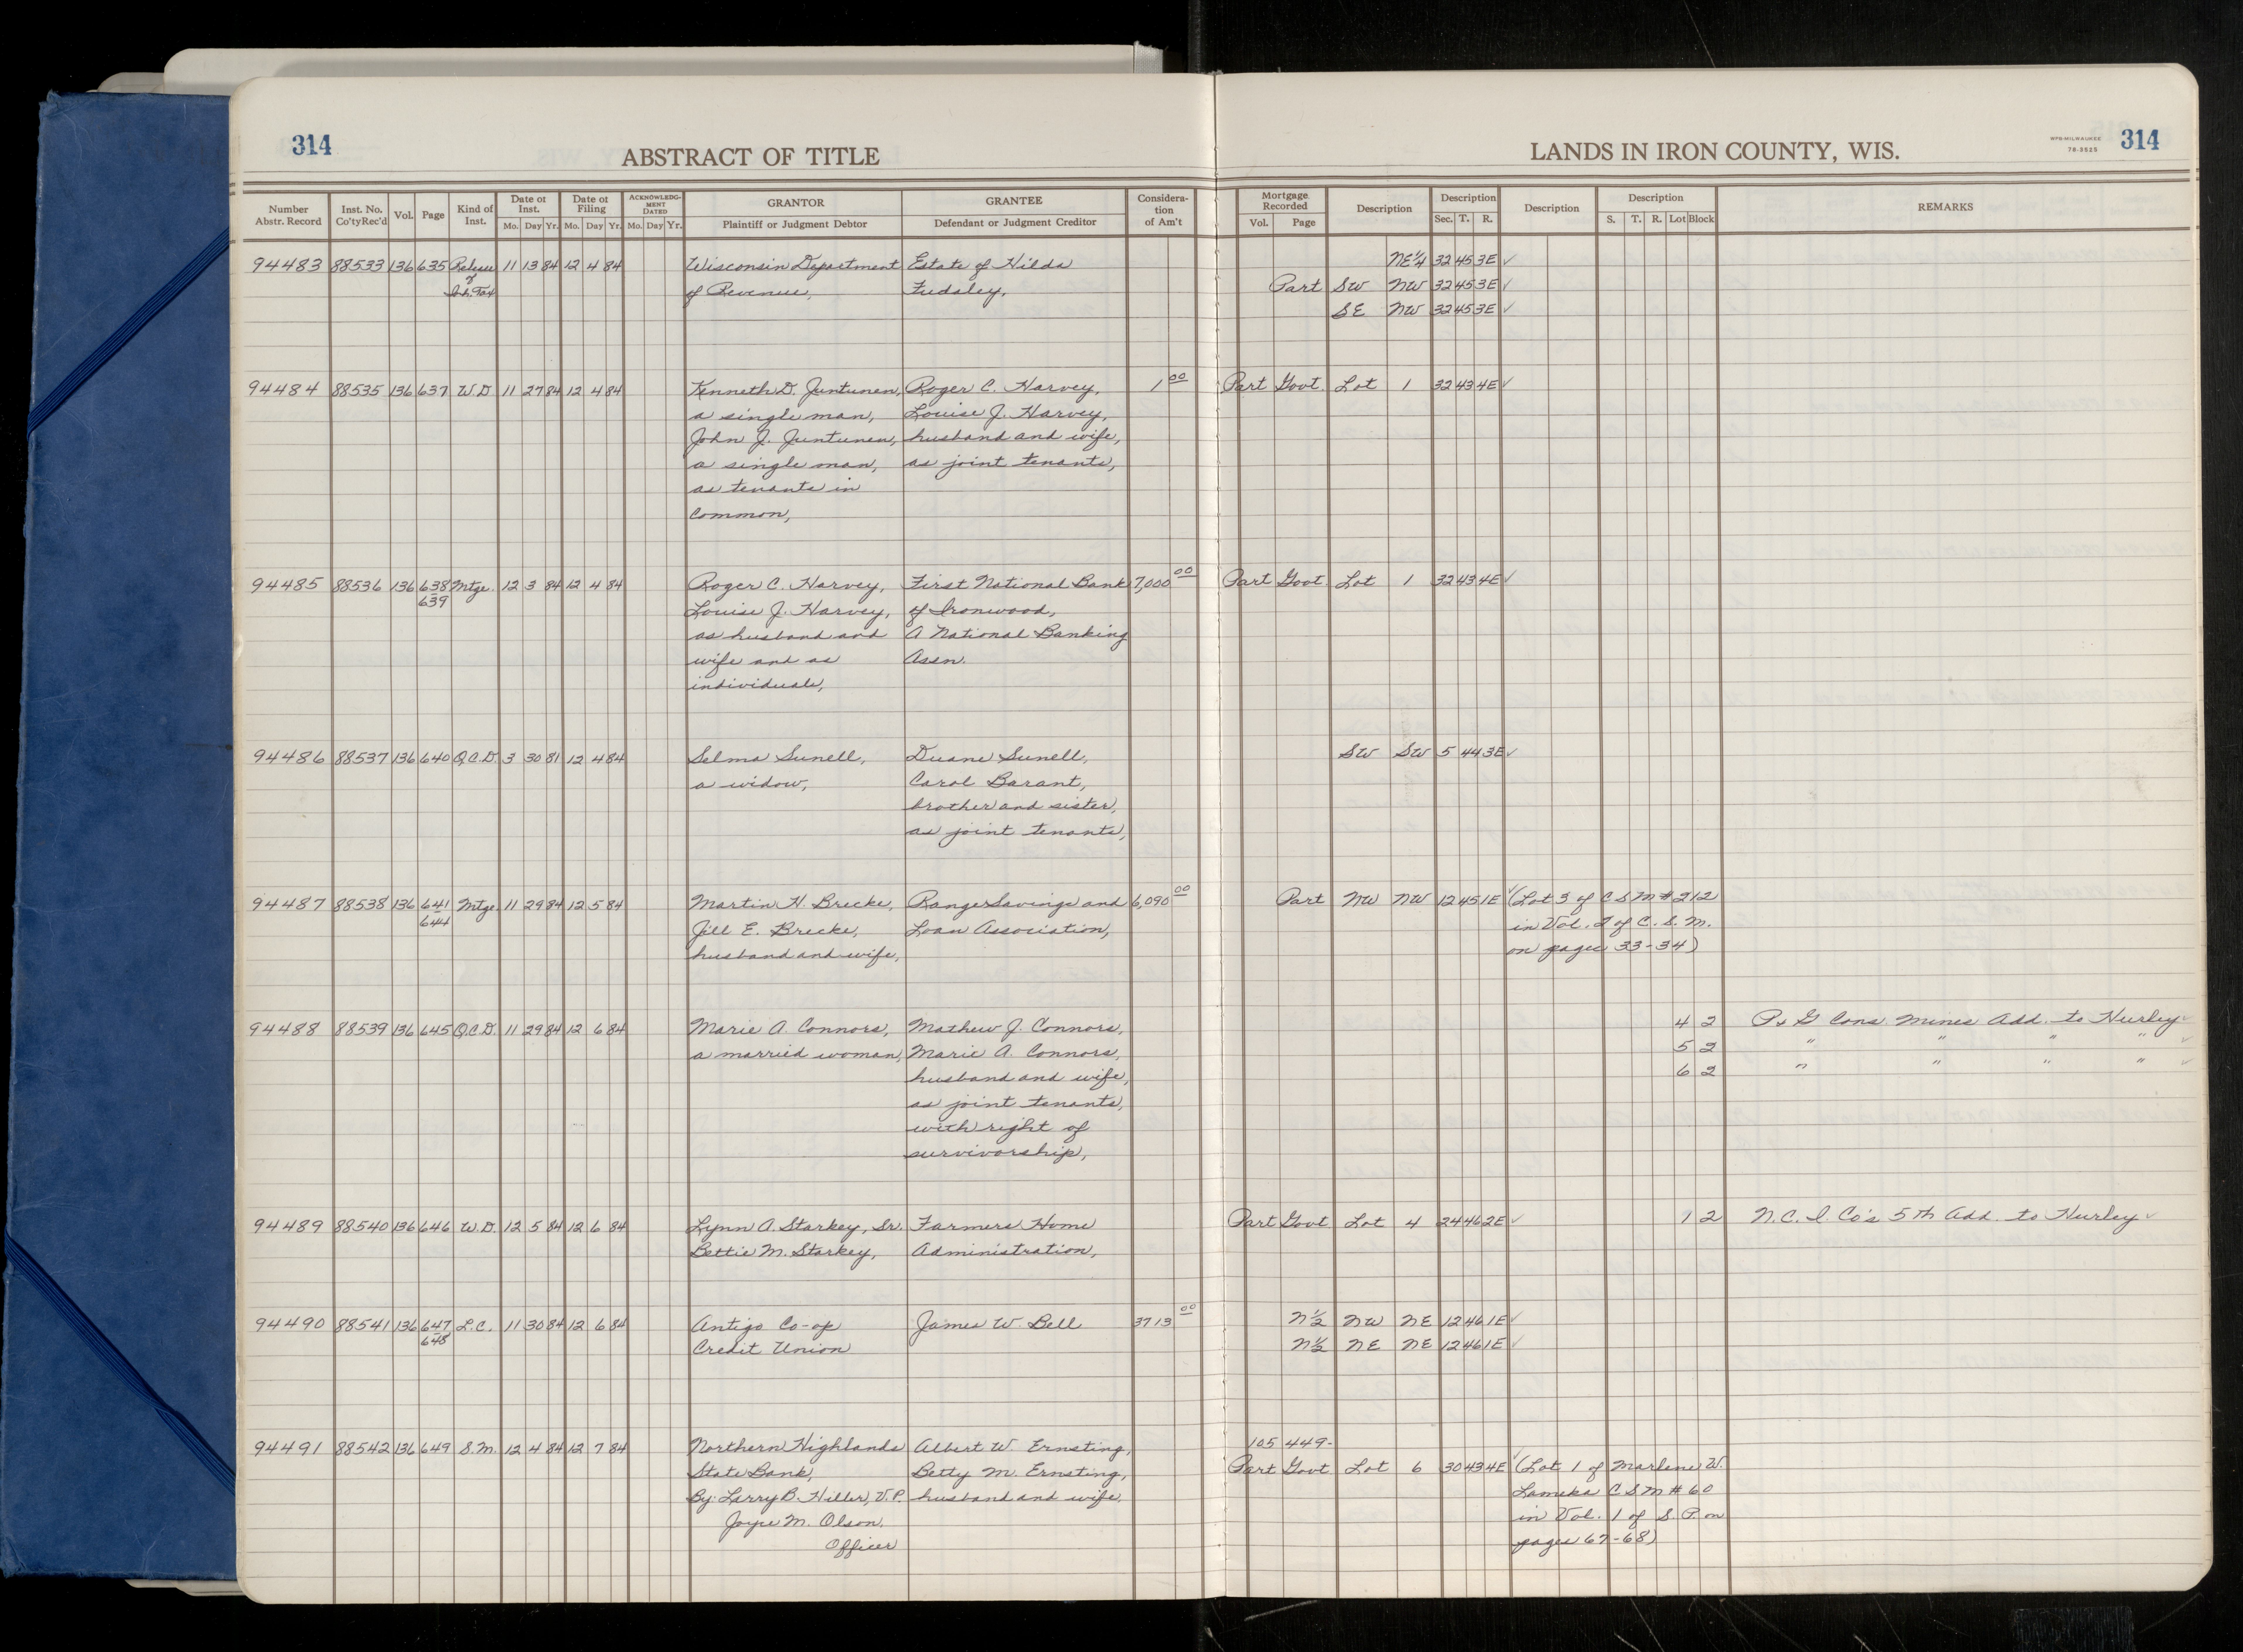 314
ABSTRACT OF TITLE
LANDS IN IRON COUNTY, WIS.
WPB-MILWAUKEE
78-3525
314
Number Abstr. Record | Inst. No. Co'ty Rec'd | Vol. | Page | Kind of Inst. | Date of Inst. Mo. Day Yr. | Date of Filing Mo. Day Yr. | ACKNOWLEDGMENT DATED Mo. Day Yr. | GRANTOR Plaintiff or Judgment Debtor | GRANTEE Defendant or Judgment Creditor | Consideration of Am't | Mortgage Recorded Vol. Page | Description | Description Sec. T. R. | Description | Description S. T. R. Lot Block | REMARKS
94483 88533 136 635 Release 11 13 84 12 4 84 Wisconsin Department Estate of Hilda NE¼ 32 45 3E ✓
of Inh. Tax of Revenue, Fudaley, Part SW NW 32 45 3E ✓
SE NW 32 45 3E ✓
94484 88535 136 637 W.D 11 27 84 12 4 84 Kenneth D. Juntunen, Roger C. Harvey, 1 00 Part Govt. Lot 1 32 43 4E ✓
a single man, Louise J. Harvey,
John J. Juntunen, husband and wife,
a single man, as joint tenants,
as tenants in
common,
94485 88536 136 638 Mtge. 12 3 84 12 4 84 Roger C. Harvey, First National Bank 7,000 00 Part Govt. Lot 1 32 43 4E ✓
639 Louise J. Harvey, of Ironwood,
as husband and A National Banking
wife and as Assn.
individuals,
94486 88537 136 640 Q.C.D. 3 30 81 12 4 84 Selma Sunell, Duane Sunell, SW SW 5 44 3E ✓
a widow, Carol Barant,
brother and sister,
as joint tenants,
94487 88538 136 641 Mtge 11 29 84 12 5 84 Martin H. Brecke, Range Savings and 6,090 00 Part NW NW 12 45 1E ✓ (Lot 3 of C S M # 212
644 Jill E. Brecke, Loan Association, in Vol. 2 of C. S. M.
husband and wife, on pages 33-34)
94488 88539 136 645 Q.C.D. 11 29 84 12 6 84 Marie A. Connors, Mathew J. Connors, 4 2 P & G Cons. Mines Add. to Hurley ✓
a married woman, Marie A. Connors, 5 2 " " " " ✓
husband and wife, 6 2 " " " " ✓
as joint tenants,
with right of
survivorship,
94489 88540 136 646 W.D. 12 5 84 12 6 84 Lynn A. Starkey, Sr. Farmers Home Part Govt Lot 4 24 46 2E ✓ 1 2 N.C.I. Co's 5th Add. to Hurley ✓
Bettie M. Starkey, Administration,
94490 88541 136 647 L.C. 11 30 84 12 6 84 Antigo Co-op James W. Bell 3713 00 N½ NW NE 12 46 1E ✓
648 Credit Union N½ NE NE 12 46 1E ✓
94491 88542 136 649 S.M. 12 4 84 12 7 84 Northern Highlands Albert W. Ernsting, 105 449-
State Bank, Betty M. Ernsting, Part Govt Lot 6 30 43 4E ✓ (Lot 1 of Marlene W.
By: Larry B. Hiller, V.P. husband and wife, Lameka C S M # 60
Joyce M. Olson, in Vol. 1 of S. P. on
Officer pages 67-68)